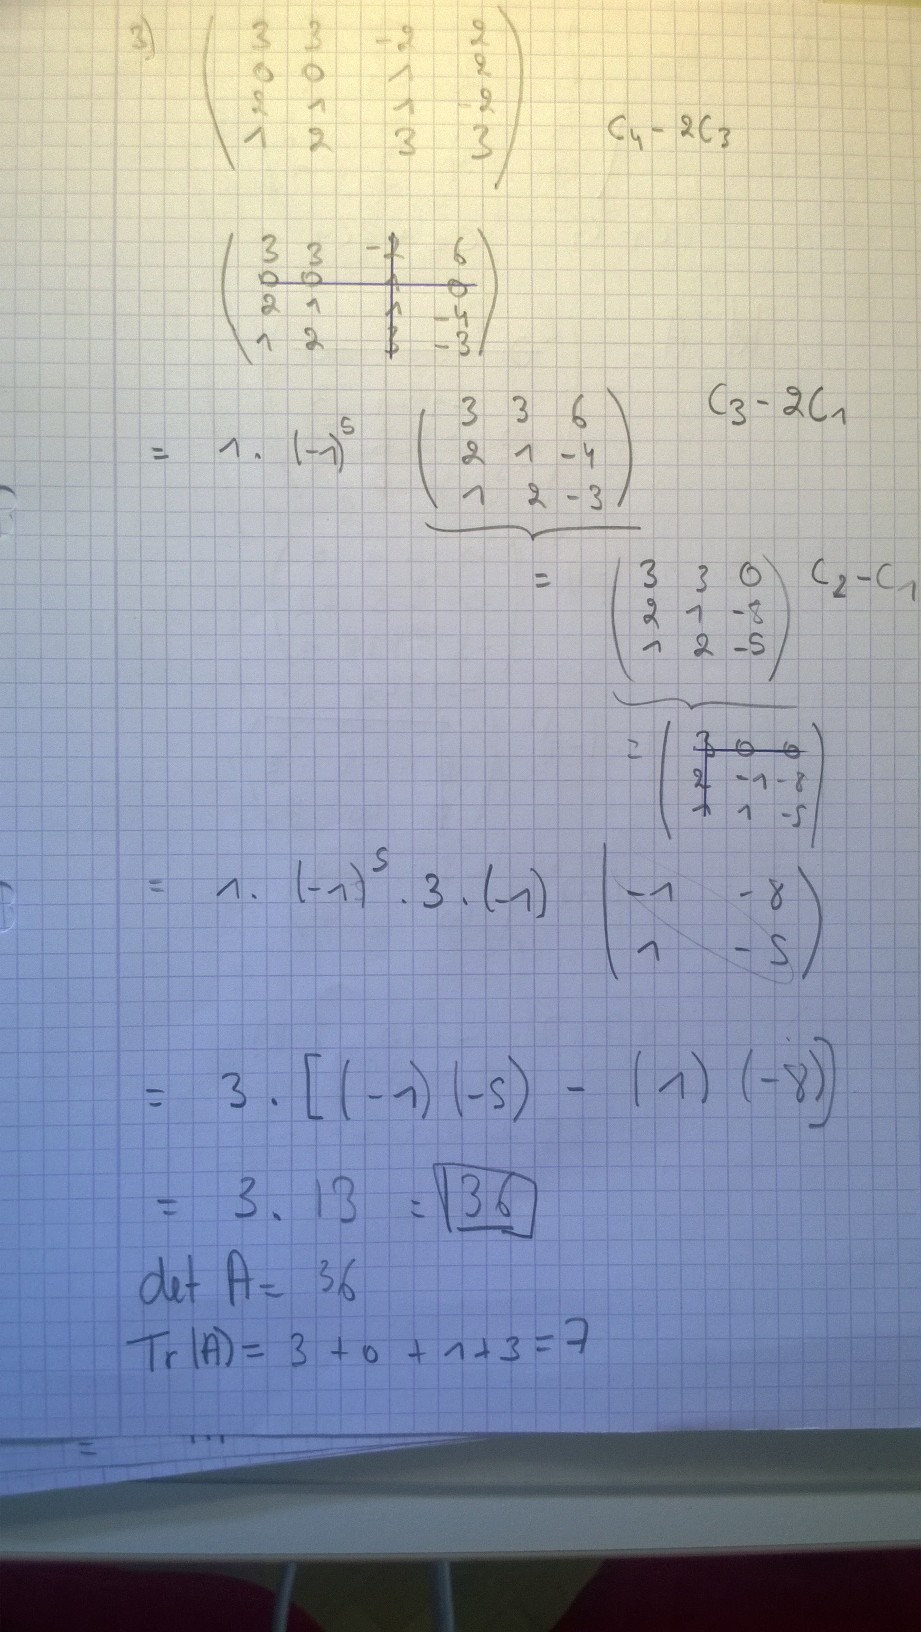 3) ( 3 3 -2 2
0 0 1 2
2 1 1 -2
1 2 3 3 ) C4 - 2C3
( 3 3 -2 6
0 0 1 0
2 1 1 -4
1 2 3 -3 )
= 1. (-1)^5 ( 3 3 6
2 1 -4
1 2 -3 ) C3 - 2C1
= ( 3 3 0
2 1 -8
1 2 -5 ) C2 - C1
= ( 3 0 0
2 -1 -8
1 1 -5 )
= 1. (-1)^5 . 3 . (-1) ( -1 -8
1 -5 )
= 3 . [ (-1) (-5) - (1) (-8) ]
= 3 . 13 = 36
det A = 36
Tr(A) = 3 + 0 + 1 + 3 = 7